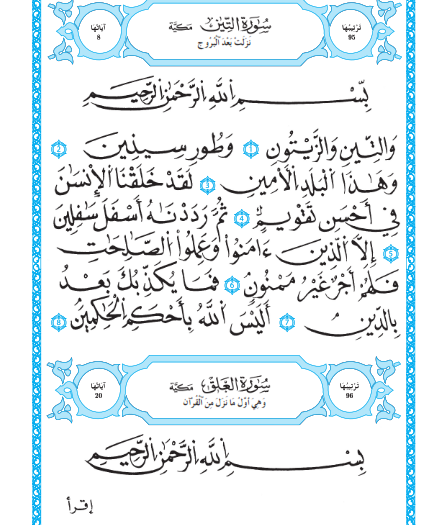 ترتيبها 95
سورة التين مكية
آياتها 8
نزلت بعد البروج
بِسْمِ اللَّهِ الرَّحْمَٰنِ الرَّحِيمِ
وَالتِّينِ وَالزَّيْتُونِ ۝١ وَطُورِ سِينِينَ ۝٢
وَهَٰذَا الْبَلَدِ الْأَمِينِ ۝٣ لَقَدْ خَلَقْنَا الْإِنسَٰنَ
فِي أَحْسَنِ تَقْوِيمٍ ۝٤ ثُمَّ رَدَدْنَٰهُ أَسْفَلَ سَٰفِلِينَ
۝٥ إِلَّا الَّذِينَ ءَامَنُوا وَعَمِلُوا الصَّالِحَاتِ
فَلَهُمْ أَجْرٌ غَيْرُ مَمْنُونٍ ۝٦ فَمَا يُكَذِّبُكَ بَعْدُ
بِالدِّينِ ۝٧ أَلَيْسَ اللَّهُ بِأَحْكَمِ الْحَاكِمِينَ ۝٨
ترتيبها 96
سورة العلق مكية
آياتها 20
وهي أول ما نزل من القرآن
بِسْمِ اللَّهِ الرَّحْمَٰنِ الرَّحِيمِ
إقرأ